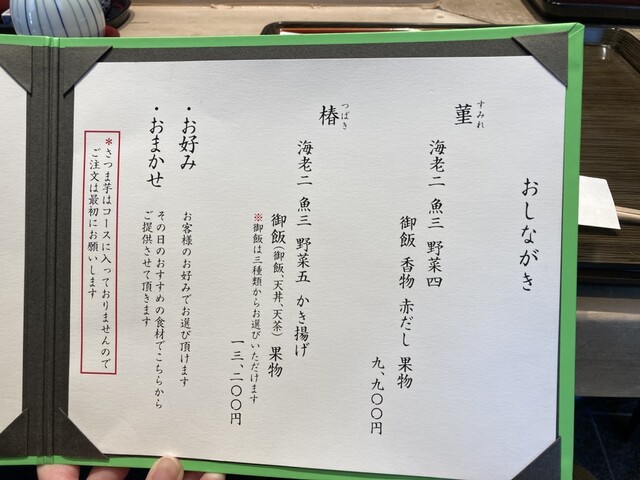 おしながき
菫
すみれ
海老二 魚三 野菜四
御飯 香物 赤だし 果物
九、九〇〇円
椿
つばき
海老二 魚三 野菜五 かき揚げ
御飯(御飯、天丼、天茶) 果物
※御飯は三種類からお選びいただけます
一三、二〇〇円
・お好み
お客様のお好みでお選び頂けます
・おまかせ
その日のおすすめの食材でこちらから
ご提供させて頂きます
*さつま芋はコースに入っておりませんので
ご注文は最初にお願いします